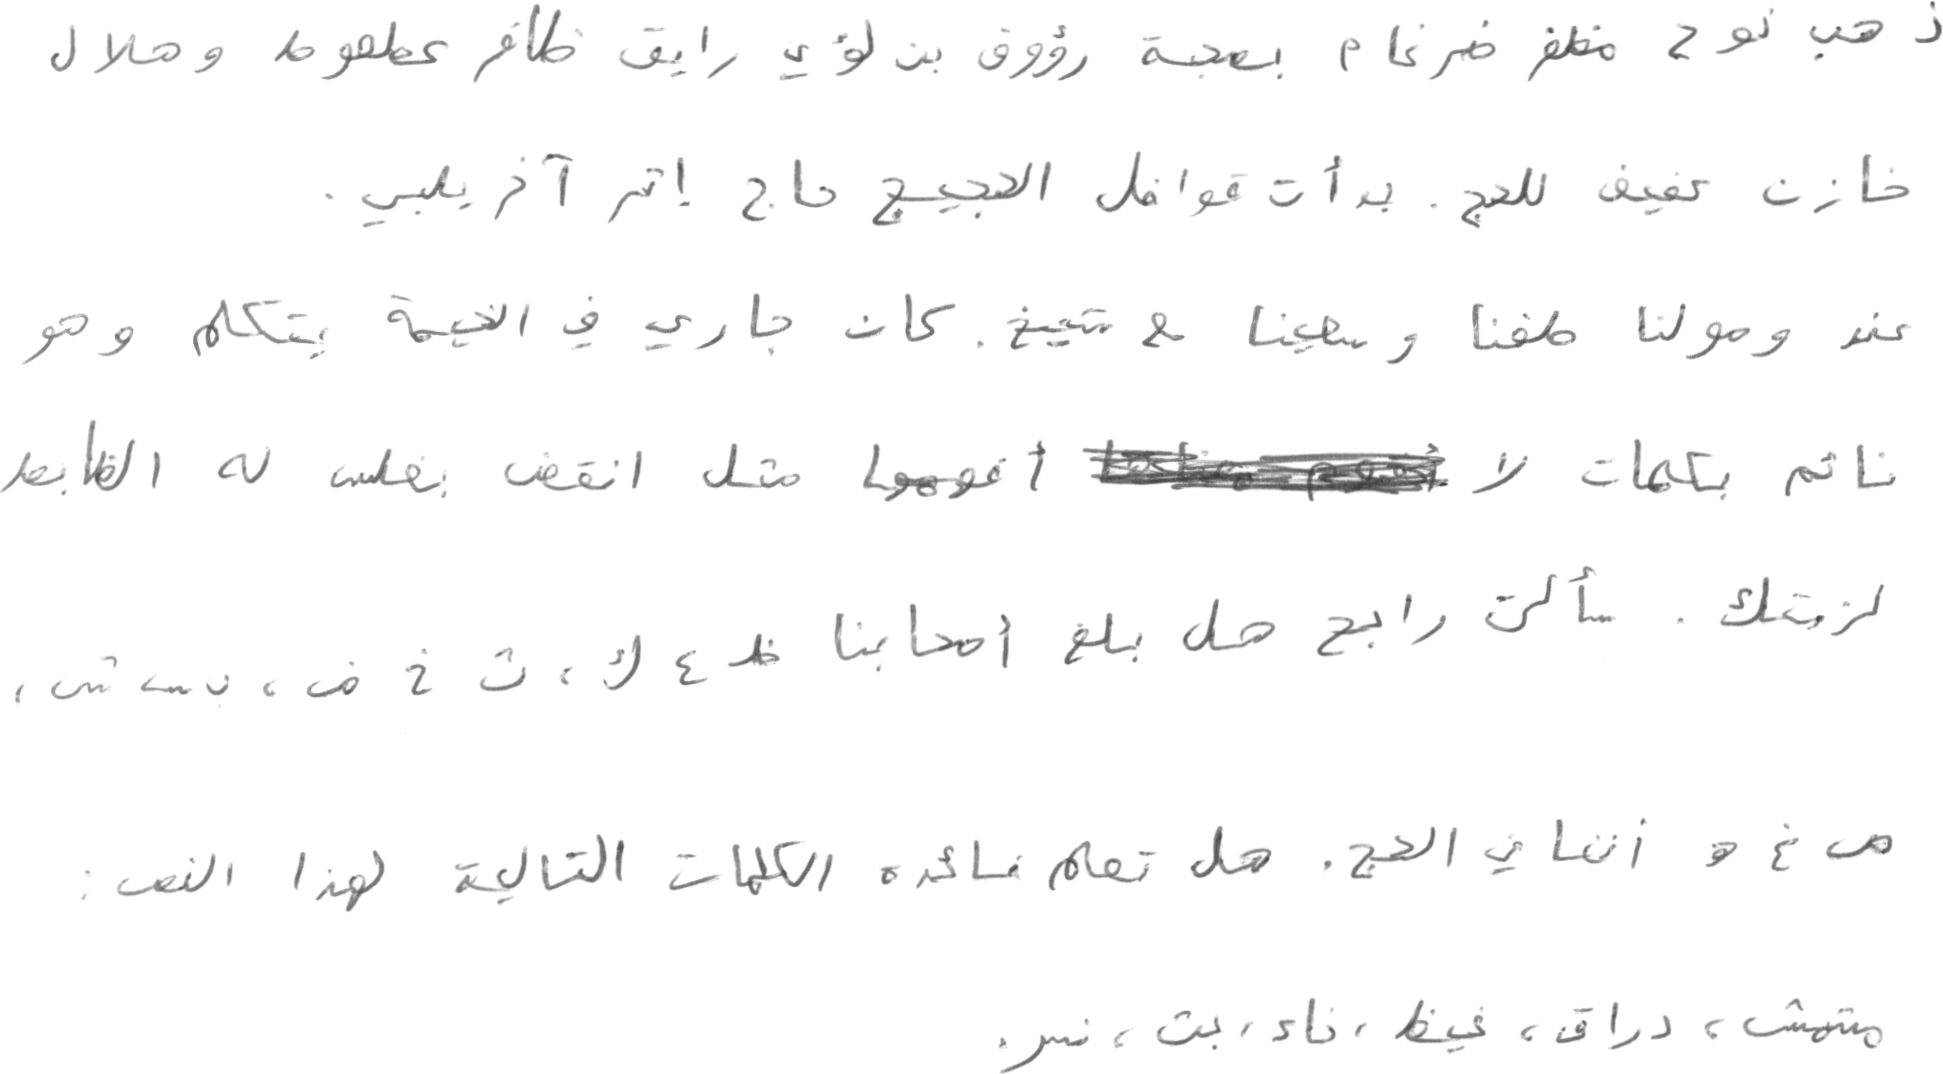 ذهب نوح مظفر ضرغام بصحبة رؤوف بن لؤي رايق ظافر عطعوط وهلال
خازن عفيف للحج. بدأت قوافل الحجيج حاج إثر آخر يلبي.
عند وصولنا طفنا وسعينا مع شيخ. كان جاري في الخيمة يتكلم وهو
نائم بكلمات لا أفهمها مثل انقض بغلس له الظابط
لزمتعك. سألت رابح هل بلغ أصحابنا ظ ع ك، ث خ ض، ب س ش،
ص غ ه أننا في الحج. هل تعلم فائدة الكلمات التالية لهذا النص:
متمش، دراق، غيظ، ناء، بت، نس.